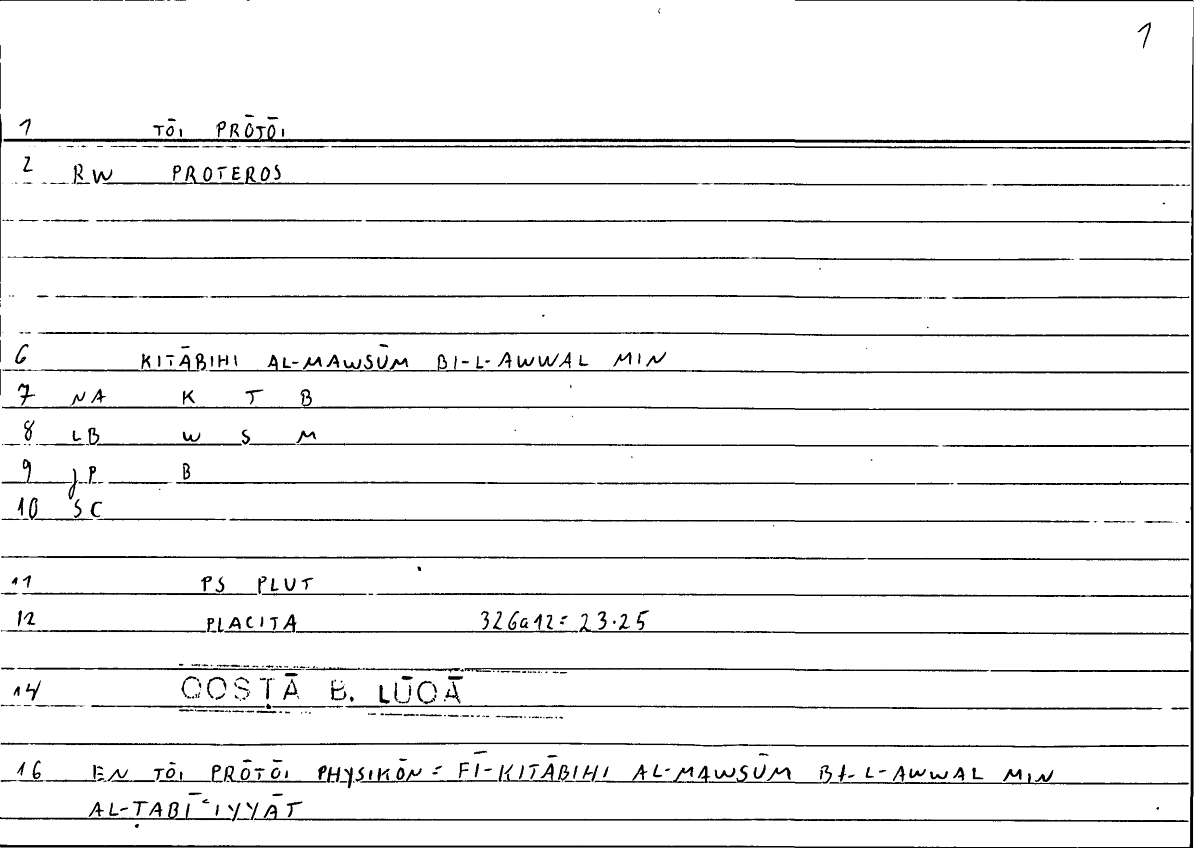 1
1 TŌI PRŌTŌI
2 RW PROTEROS
6 KITĀBIHI AL-MAWSŪM BI-L-AWWAL MIN
7 NA K T B
8 LB W S M
9 JP B
10 SC
11 PS PLUT
12 PLACITA 326a12 = 23.25
14 QOSṬĀ B. LŪQĀ
16 EN TŌI PRŌTŌI PHYSIKŌN = FĪ-KITĀBIHI AL-MAWSŪM BI-L-AWWAL MIN
AL-ṬABĪʿIYYĀT